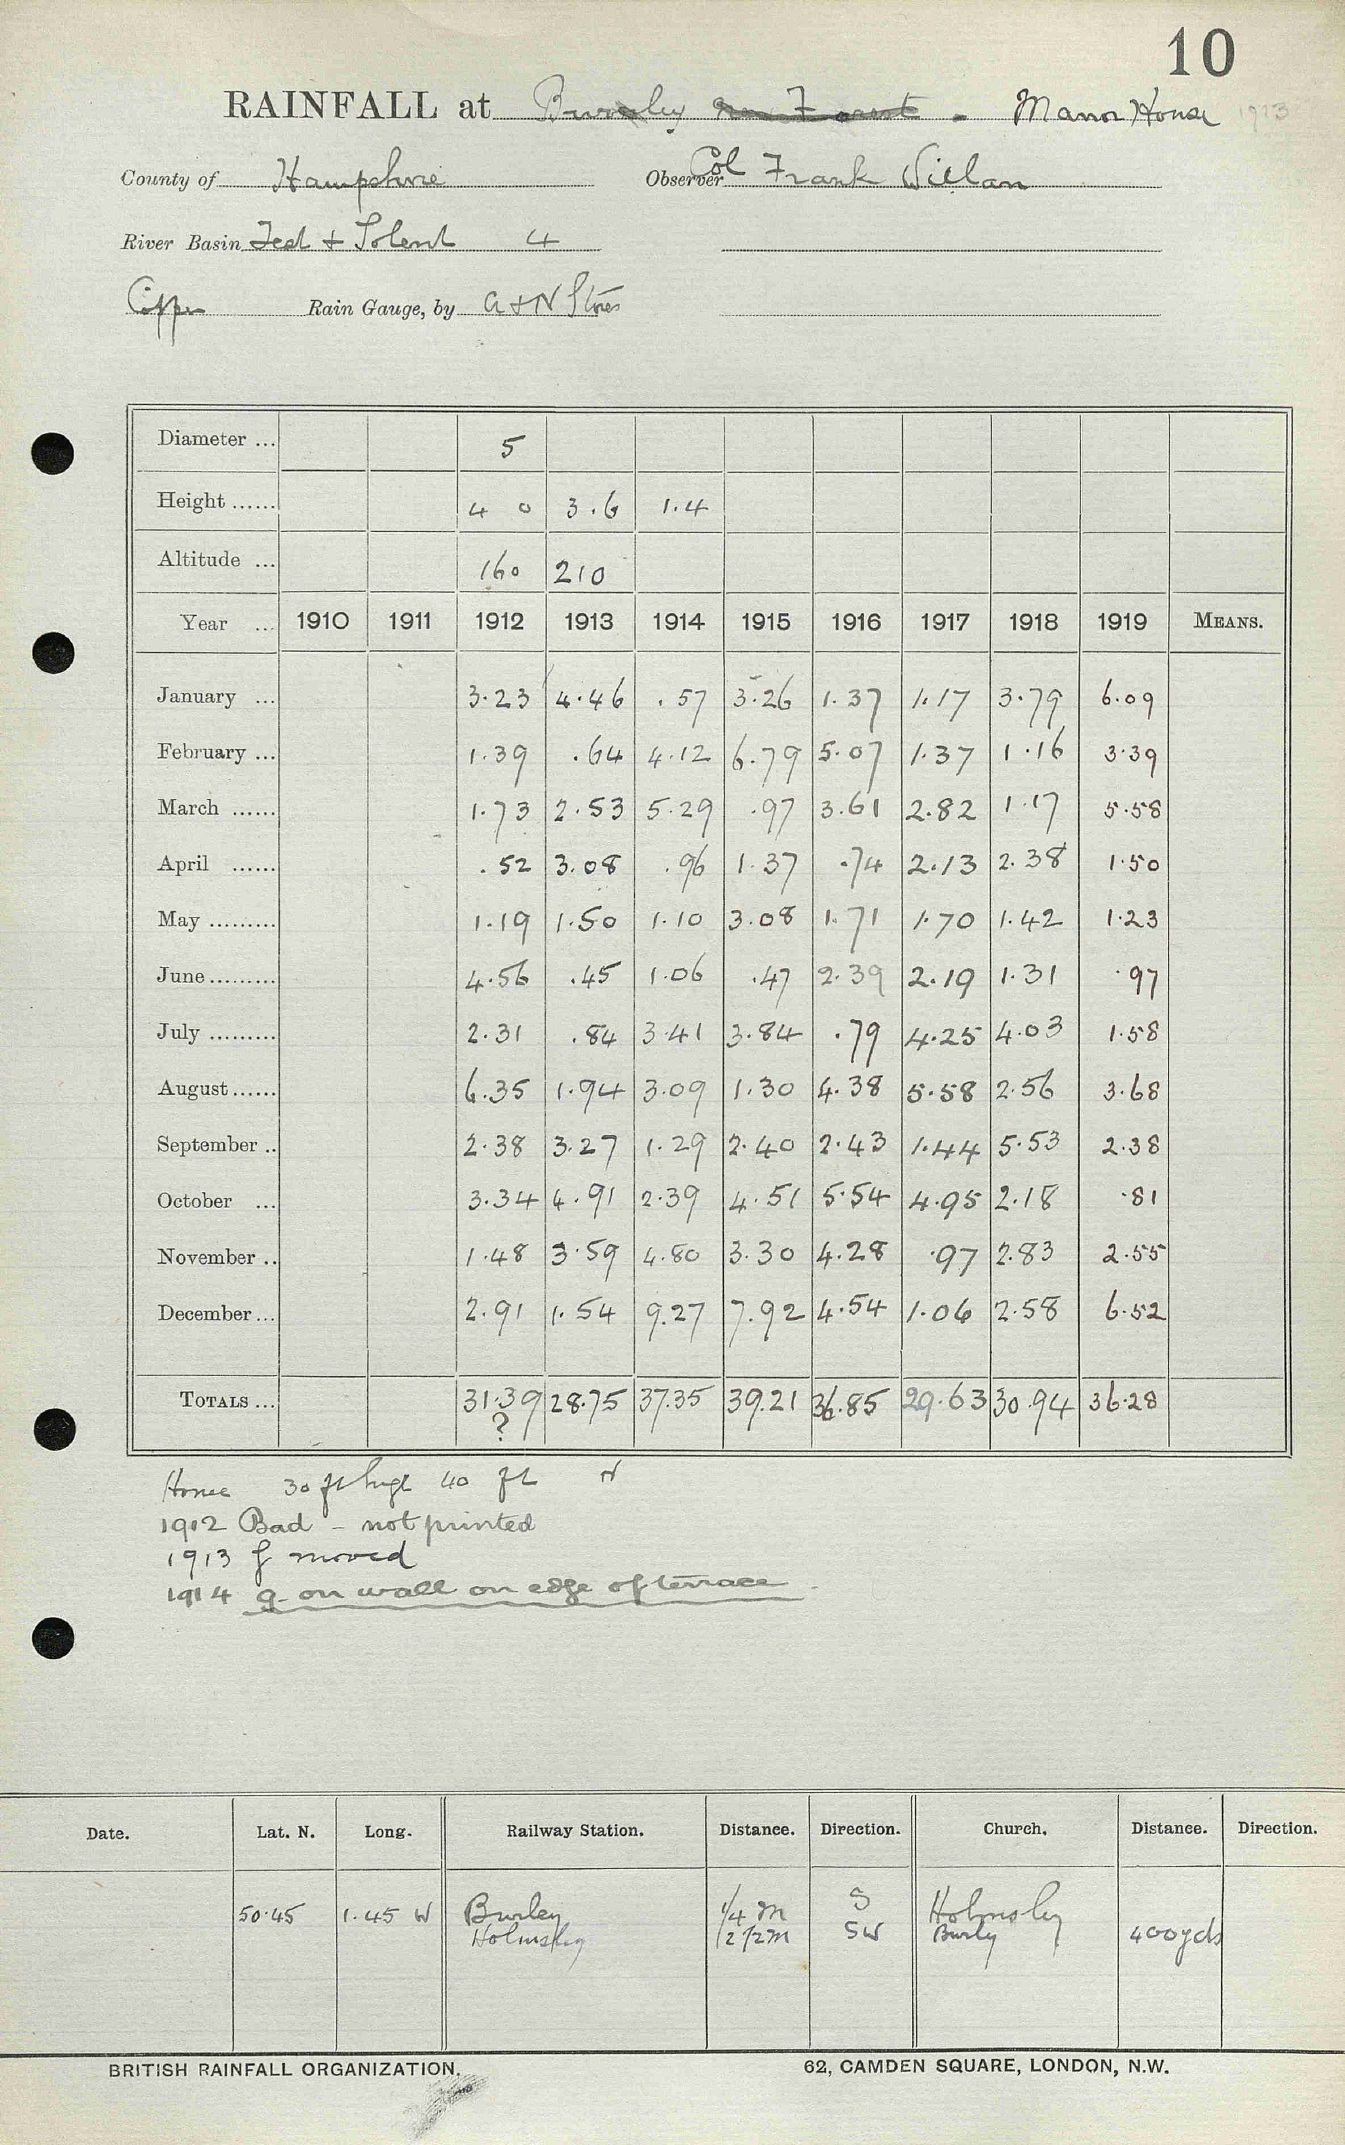 10
RAINFALL at Burley New Forest - Manor House 1913
County of Hampshire Observer Col Frank Willan
River Basin Test + Solent 4
Copper Rain Gauge, by A + N Stores
Diameter ... 5
Height ...... 4 0 3.6 1.4
Altitude ... 160 210
Year ... 1910 1911 1912 1913 1914 1915 1916 1917 1918 1919 MEANS.
January ... 3.23 4.46 .57 3.26 1.37 1.17 3.79 6.09
February ... 1.39 .64 4.12 6.79 5.07 1.37 1.16 3.39
March ...... 1.73 2.53 5.29 .97 3.61 2.82 1.17 5.58
April ...... .52 3.08 .96 1.37 .74 2.13 2.38 1.50
May ......... 1.19 1.50 1.10 3.08 1.71 1.70 1.42 1.23
June ......... 4.56 .45 1.06 .47 2.39 2.19 1.31 .97
July ......... 2.31 .84 3.41 3.84 .79 4.25 4.03 1.58
August ...... 6.35 1.94 3.09 1.30 4.38 5.58 2.56 3.68
September .. 2.38 3.27 1.29 2.40 2.43 1.44 5.53 2.38
October ... 3.34 4.91 2.39 4.51 5.54 4.95 2.18 .81
November .. 1.48 3.59 4.80 3.30 4.28 .97 2.83 2.55
December ... 2.91 1.54 9.27 7.92 4.54 1.06 2.58 6.52
TOTALS ... 31.39 28.75 37.35 39.21 36.85 29.63 30.94 36.28
?
House 30 ft high 40 ft N
1912 Bad - not printed
1913 g moved
1914 g. on wall on edge of terrace
Date. Lat. N. Long. Railway Station. Distance. Direction. Church. Distance. Direction.
50.45 1.45 W Burley 1/4 m S Holmsley
Holmsley 2 1/2 m SW Burly 400 yds
BRITISH RAINFALL ORGANIZATION. 62, CAMDEN SQUARE, LONDON, N.W.